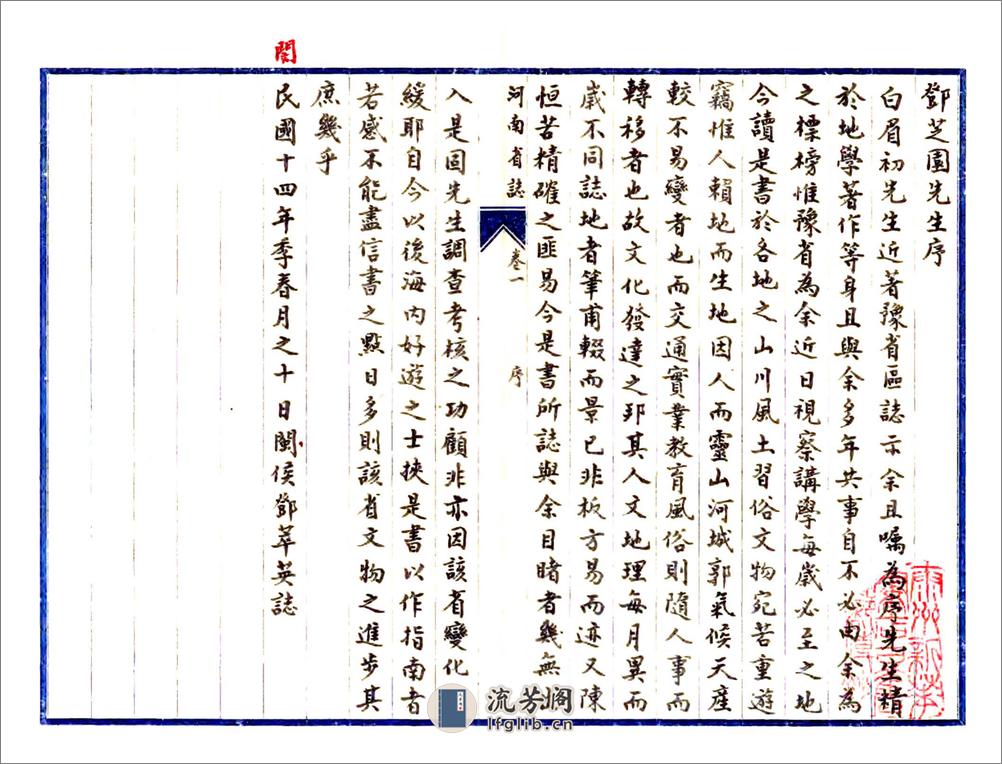 鄧芝園先生序
白眉初先生近著豫省區誌示余且囑為序先生精
於地學著作等身且與余多年共事自不必由余為
之標榜惟豫省為余近日視察講學每歲必至之地
今讀是書於各地之山川風土習俗文物宛若重遊
竊惟人賴地而生地因人而靈山河城郭氣候天產
較不易變者也而交通實業教育風俗則隨人事而
轉移者也故文化發達之邦其人文地理每月異而
歲不同誌地者筆甫輟而景已非板方易而迹又陳
恒苦精確之匪易今是書所誌與余目睹者幾無
河南省誌 卷一 序
入是固先生調查考核之功顧非亦因該省變化
緩耶自今以後海內好遊之士挾是書以作指南者
若感不能盡信書之點日多則該省文物之進步其
庶幾乎
民國十四年季春月之十日閩侯鄧萃英誌
閩
流芳阁
lfglib.cn